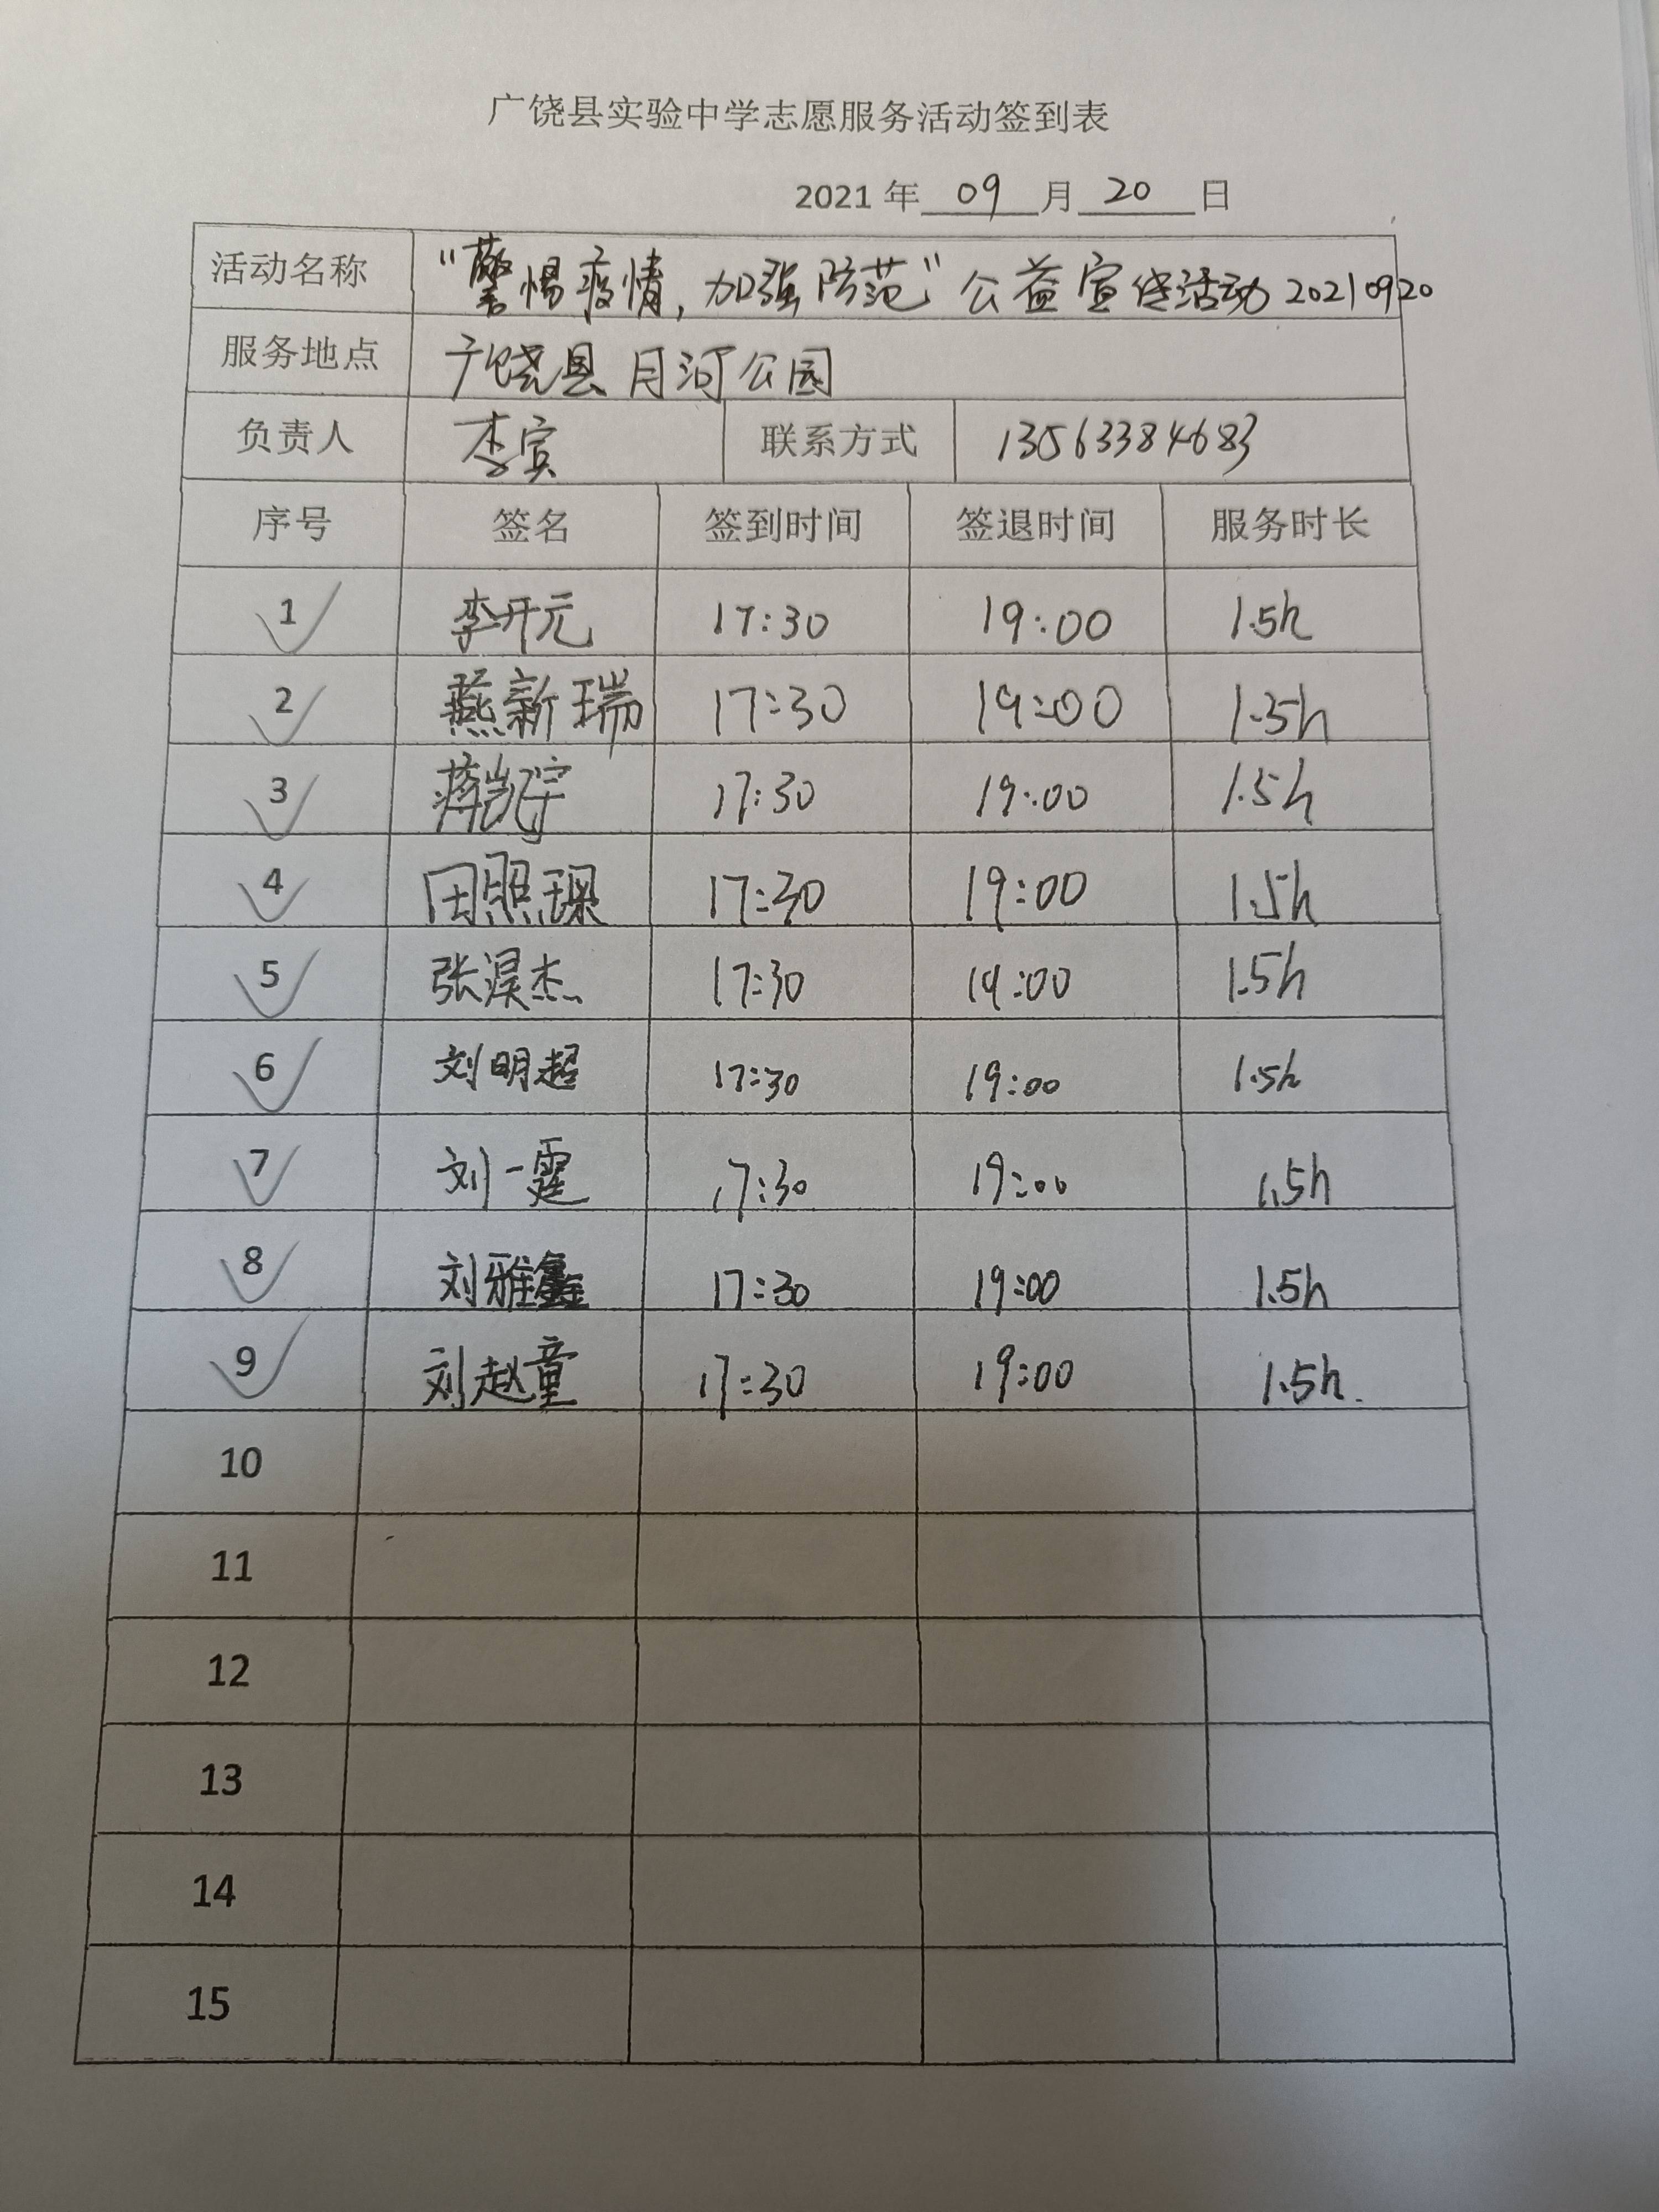 广饶县实验中学志愿服务活动签到表
2021 年 09 月 20 日
活动名称 “警惕疫情,加强防范”公益宣传活动20210920
服务地点 广饶县月河公园
负责人 李宾 联系方式 13563384683
序号 签名 签到时间 签退时间 服务时长
1 李开元 17:30 19:00 1.5h
2 燕新瑞 17:30 19:00 1.5h
3 蒋凯宇 17:30 19:00 1.5h
4 田照琛 17:30 19:00 1.5h
5 张淏杰 17:30 19:00 1.5h
6 刘明超 17:30 19:00 1.5h
7 刘一霆 17:30 19:00 1.5h
8 刘雅鑫 17:30 19:00 1.5h
9 刘赵童 17:30 19:00 1.5h.
10
11
12
13
14
15